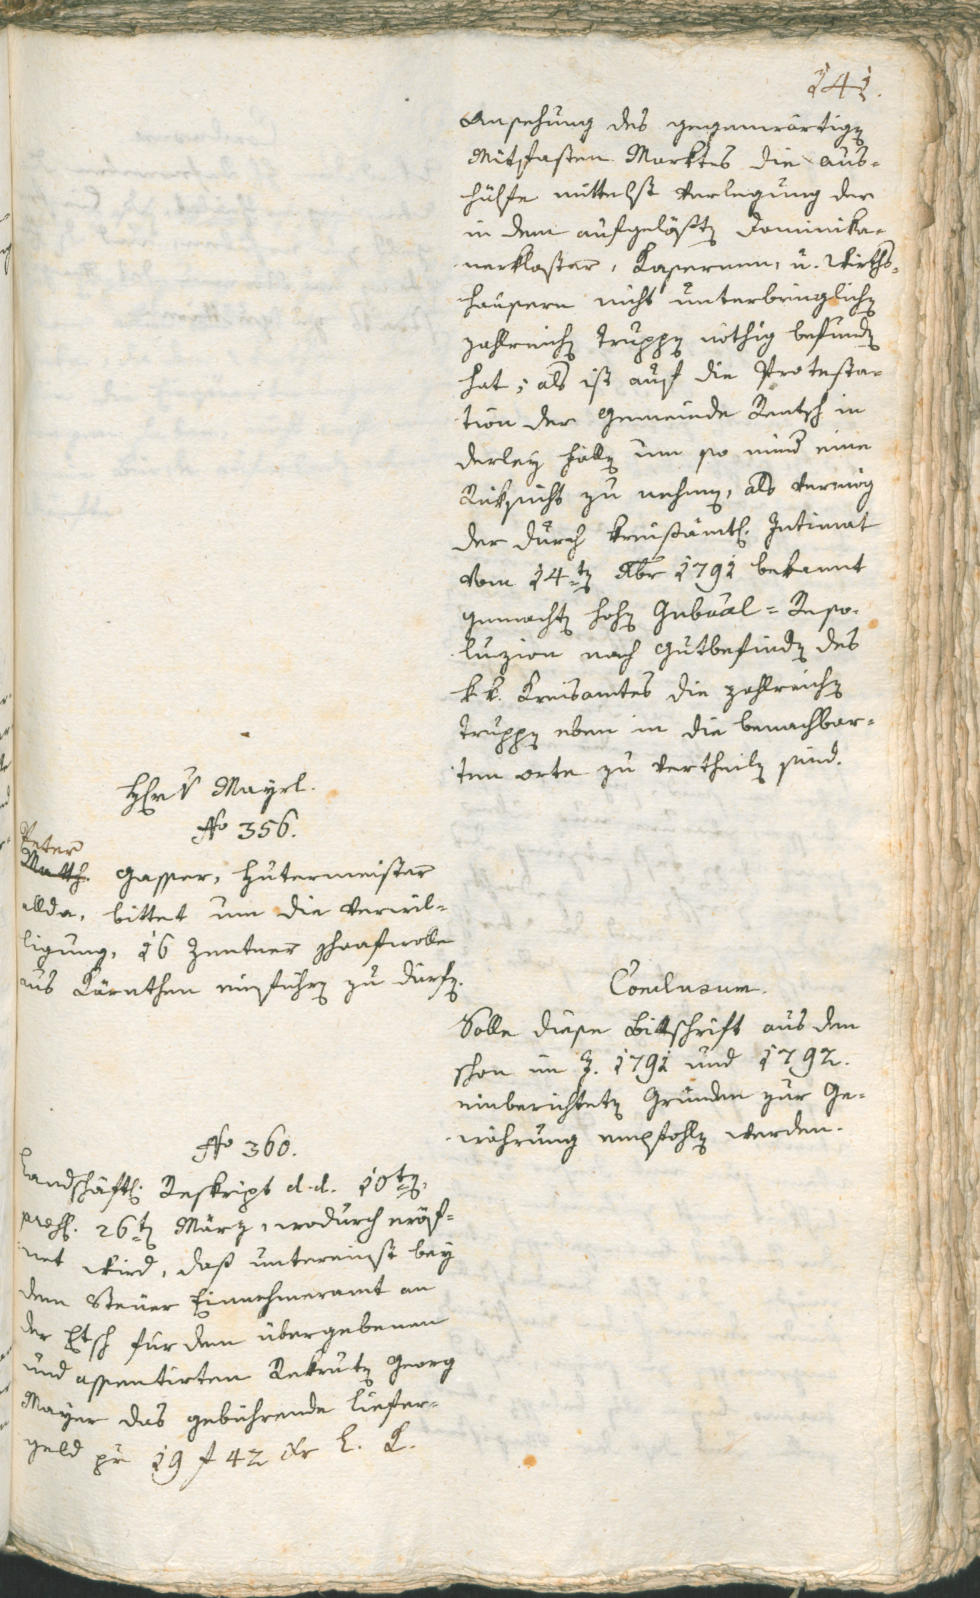 141.
Ansehung des gegenwärtigen
Mitfasten Marktes die aus-
hülfe mittelst Verlegung der
in dem aufgelößten Dominika-
nerkloster, Kasernen, u. Wirths-
häusern nicht unterbringlichen
zahlreichen Truppen nöthig befunden
hat; als ist auf die Protesta-
tion der Gemeinde Rentsch in
derley fällen um so minder eine
Rüksicht zu nehmen, als vermög
der durch kreisämtl. Intimat
vom 14ten 1791 bekannt
gemachten hohen Gubäal-Reso-
luzion nach Gutbefinden des
k. k. Kreisamtes die zahlreichen
Truppen eben in die benachbar-
ten orte zu vertheilen sind.
Hr. v Mayrl.
No 356.
Peter
Matth. Gasser, Hutermeister
allda, bittet um die Verwil-
ligung, 16 Zentner schaafwolle
aus Kärnthen einführen zu dürfen.
Conclusum.
Solle diese Bittschrift aus den
schon im J. 1791 und 1792.
einberichteten Gründen zur Ge-
währung empfohlen werden.
No 360.
Landschäftl. Reskript d. d. 10ten,
26ten März, wodurch eröf-
net wird, daß untereinst bey
dem Steuer Einnehmeramt an
der Etsch für den übergebenen
und assentirten Rekruten Georg
Mayer das gebührende liefer-
geld pr 19 f 42 xr